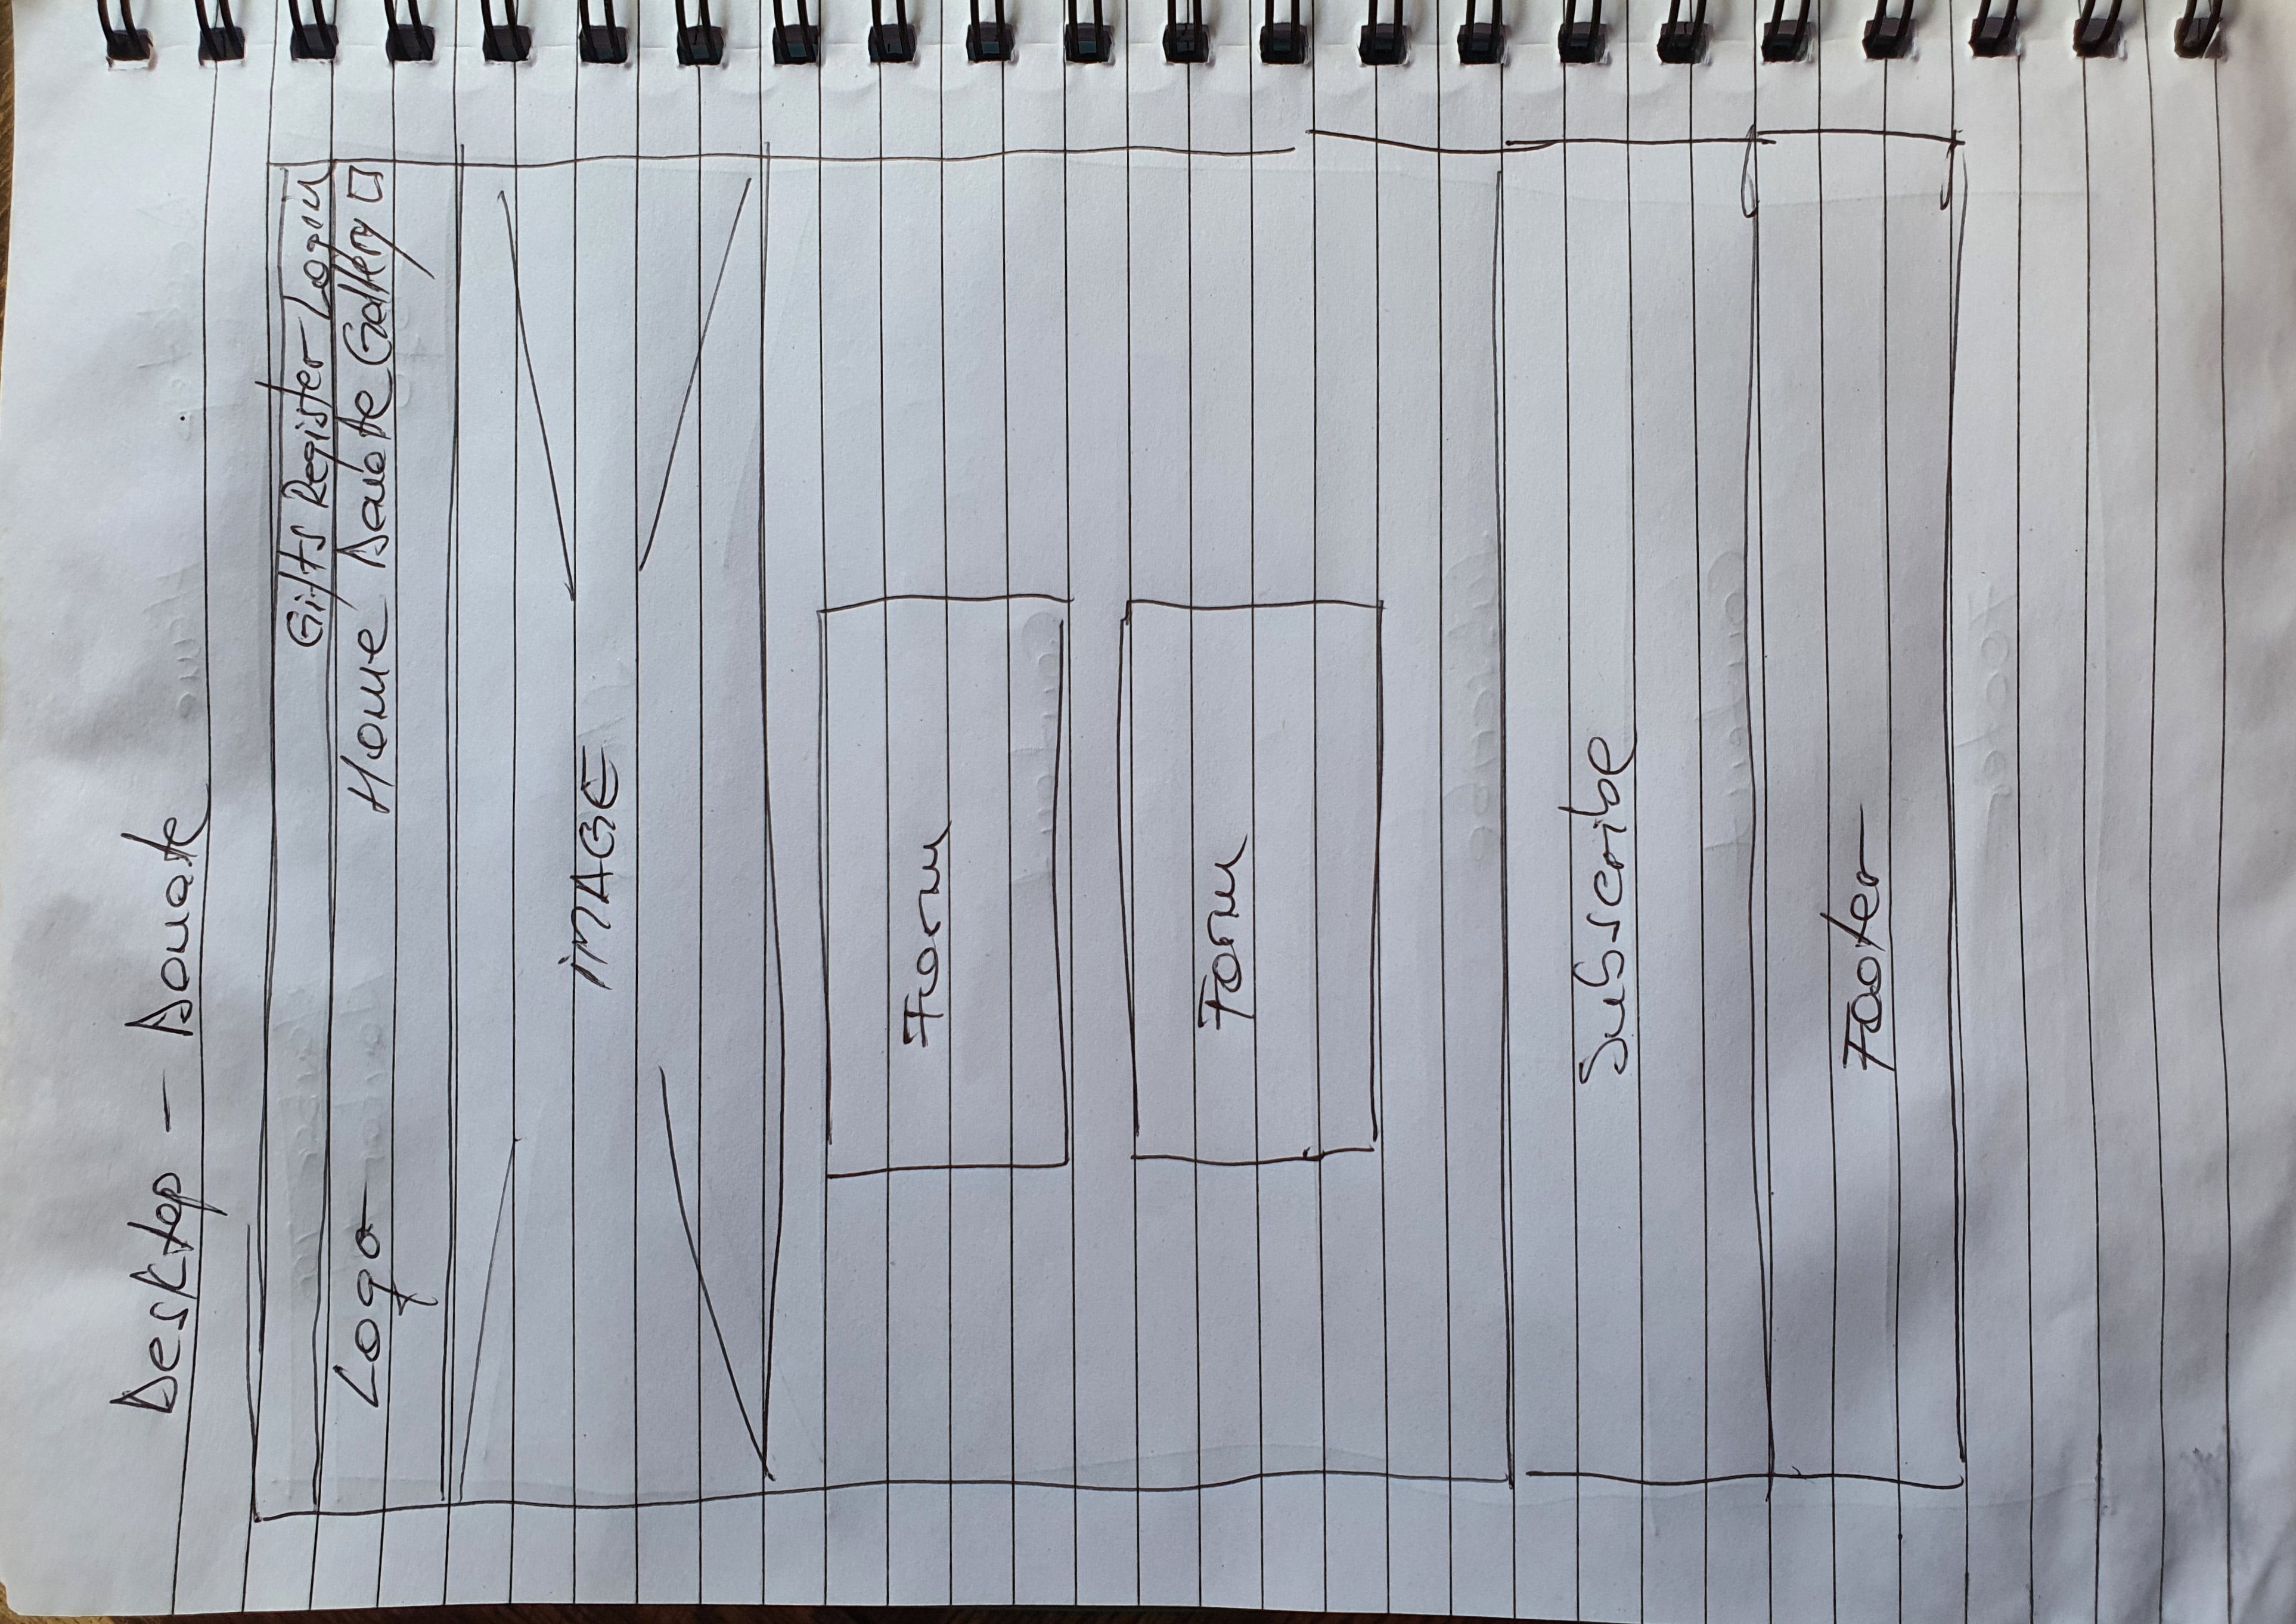 Desktop - Donate
Gifts Register Login
Logo Home Donate Gallery
IMAGE
Form
Form
Subscribe
Footer